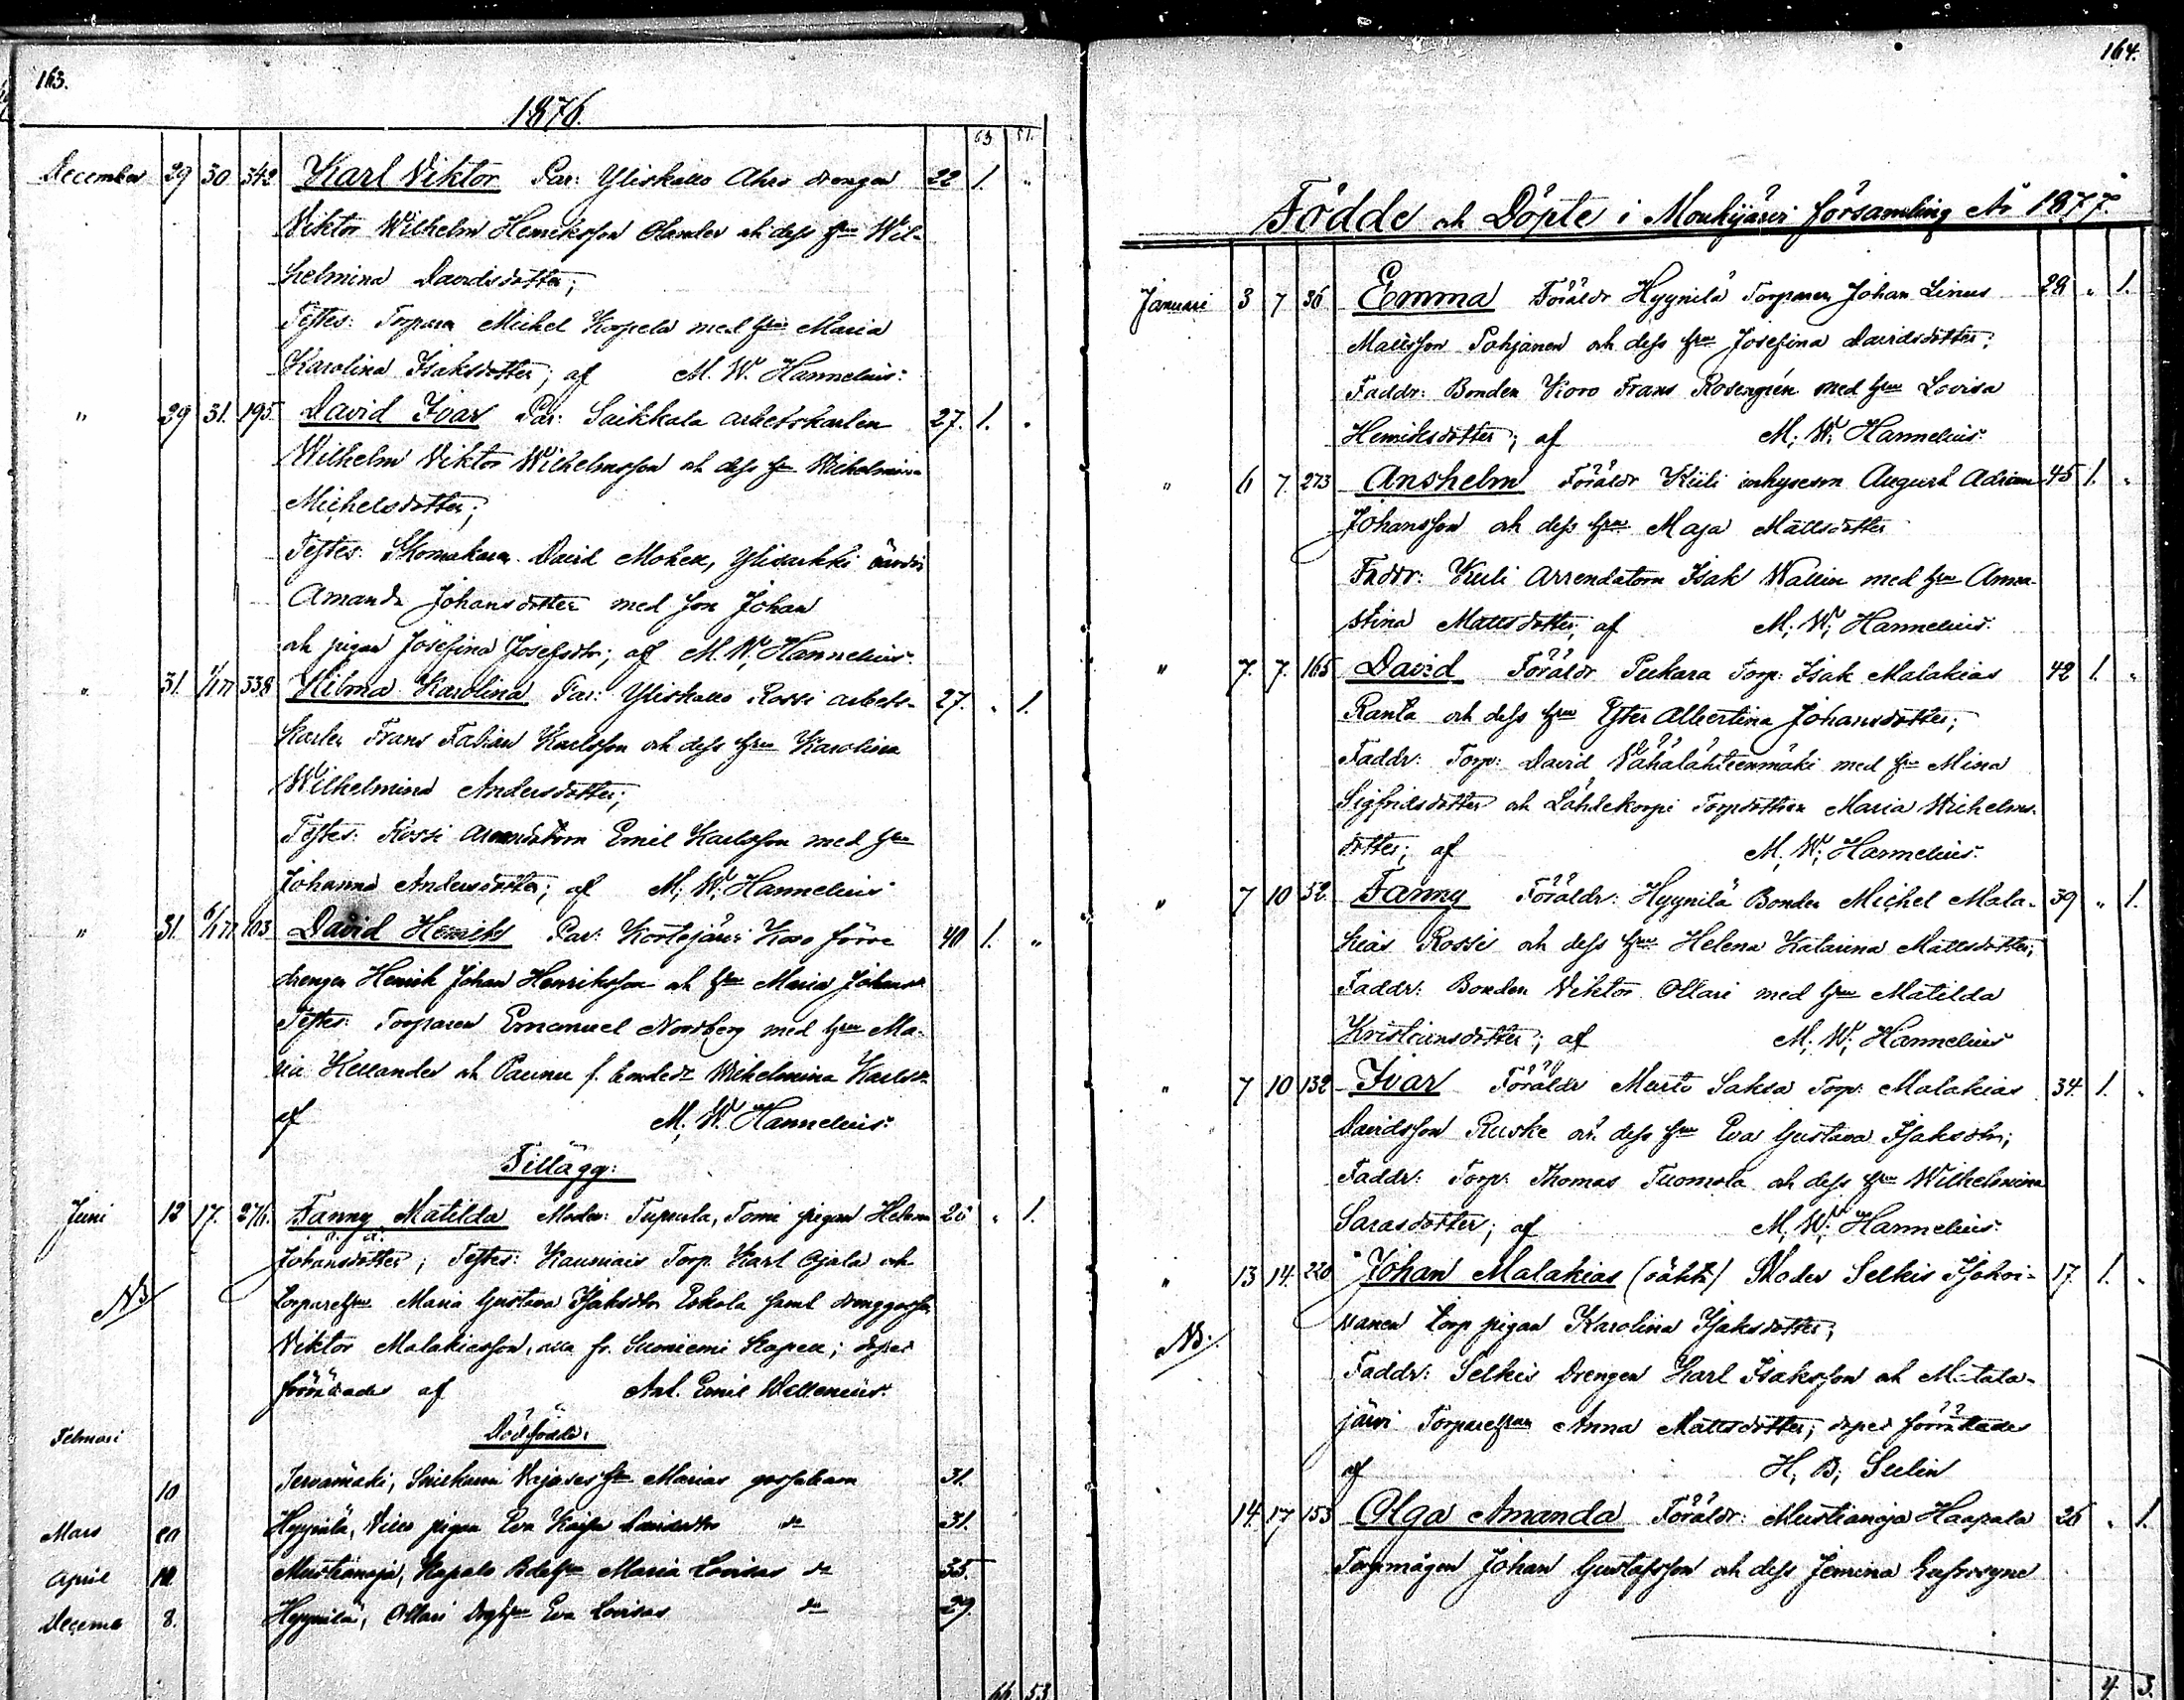 163.
1876.
63 51.
December 29 30 342 Karl Viktor Par: Yliskallo Ahro drengen 22 1. "
Viktor Wilhelm Henriksson och dess hu Wil-
helmina Davidsdotter;
Testes: Torparen Michel Korpela med hu Maria
Karolina Isaksdotter; af M. W. Hannelius.
" 29 31. 195. David Ivar Par: Saikkala arbetskarlen 27. 1. "
Wilhelm Viktor Wilhelmsson och dess hu Wilhelmina
Michelsdotter;
Testes: Skomakaren David Mohell, Ylisarkki
Amanda Johansdotter med son Johan
och pigan Josefina Josefsdtr; af M. W. Hannelius.
" 31. 1/1 77 338 Hilma Karolina Par: Yliskallo Rossi arbets- 27. " 1.
karlen Frans Fabian Karlsson och dess hu Karolina
Wilhelmina Andersdotter;
Testes: Rossi arrendatorn Emil Karlsson med hu
Johanna Andersdotter; af M. W. Hannelius
" 31. 6/1 77 103. David Henrik Par: Kortejärvi Koso förre 40 1. "
drengen Henrik Johan Henriksson och hu Maria Johansdr
Testes: Torparen Emanuel Nordberg med hu Ma-
ria Hellander och f. bondedr Wilhelmina Karlsdr
af M. W. Hannelius.
Tillägg:
Juni 12 17. 276. Fanny Matilda Moder: Tupurla, Tomi pigan Helena 26 " 1.
Johansdotter; Testes: Kauniais Torp. Karl Ojala och
torparehu Maria Gustava Isaksdtr Eskola samt drenggossen
Viktor Malakiasson, alla fr. Suoniemi Kapell; dopet
förrättades af Emil Wallenius.
NB
Dödfödde:
Februari 10 Jervämäki, hu Marias gossebarn 31.
Mars 20 Hyynilä, pigan Eva Kaisa Davidsdtr do 31.
April 10 Mustianoja, Hapala hu Maria Lovisas do 35.
Decemb 8. Hyynilä, Ollari hu Eva Lovisas do 29.
66 53
164.
Födde och Döpte i Mouhijärvi församling År 1877.
Januari 3 7 36 Emma Föräldr Hyynilä Torparen Johan Linus 28 " 1.
Mattsson Pohjanen och dess hu Josefina Davidsdotter;
Faddr: Bonden Koro Frans Rosengrén med hu Lovisa
Henriksdotter; af M. W. Hannelius.
" 6 7. 273 Anshelm Föräldr Kuli inhysesm August Adrian 45 1. "
Johansson och dess hu Maja Mattsdotter
Faddr: Kuli arrendatorn Isak Wallin med hu Anna
Stina Mattsdotter; af M. W. Hannelius.
" 7. 7. 165 David Föräldr Pukara Torp: Isak Malakias 42 1. "
Ranta och dess hu Ester Albertina Johansdotter;
Faddr: Torp: David Vähälähteenmäki med hu Mina
Sigfridsdotter och Lähdekorpi Torpdottern Maria Wilhelms-
dotter; af M. W. Hannelius.
" 7 10 52 Fanny Föräldr: Hyynilä Bonden Michel Mala- 39 " 1.
kias Rossi och dess hu Helena Katarina Mattsdotter;
Faddr: Bonden Viktor Ollari med hu Matilda
Kristiansdotter; af M. W. Hannelius
" 7 10 132 Ivar Föräldr Murto Saksa Torp: Malakias 34. 1. "
Davidsson Ruoke och dess hu Eva Gustava Isaksdtr;
Faddr: Torp: Thomas Tuomola och dess hu Wilhelmina
Sarasdotter; af M. W. Hannelius.
" 13 14. 220 Johan Malakias (oäkta) Moder Selkis Isokoi- 17. 1. "
vanen torp pigan Karolina Isaksdotter;
NB.
Faddr: Selkis Drengen Karl Isaksson och Metala-
järvi Torparehu Anna Mattsdotter; dopet förrättades
af H. B. Selin
14. 17 153 Olga Amanda Föräldr: Mustianoja Haapala 26 " 1.
Torpmågen Johan Gustafsson och dess Jemina Eufrosyne
4. 3.